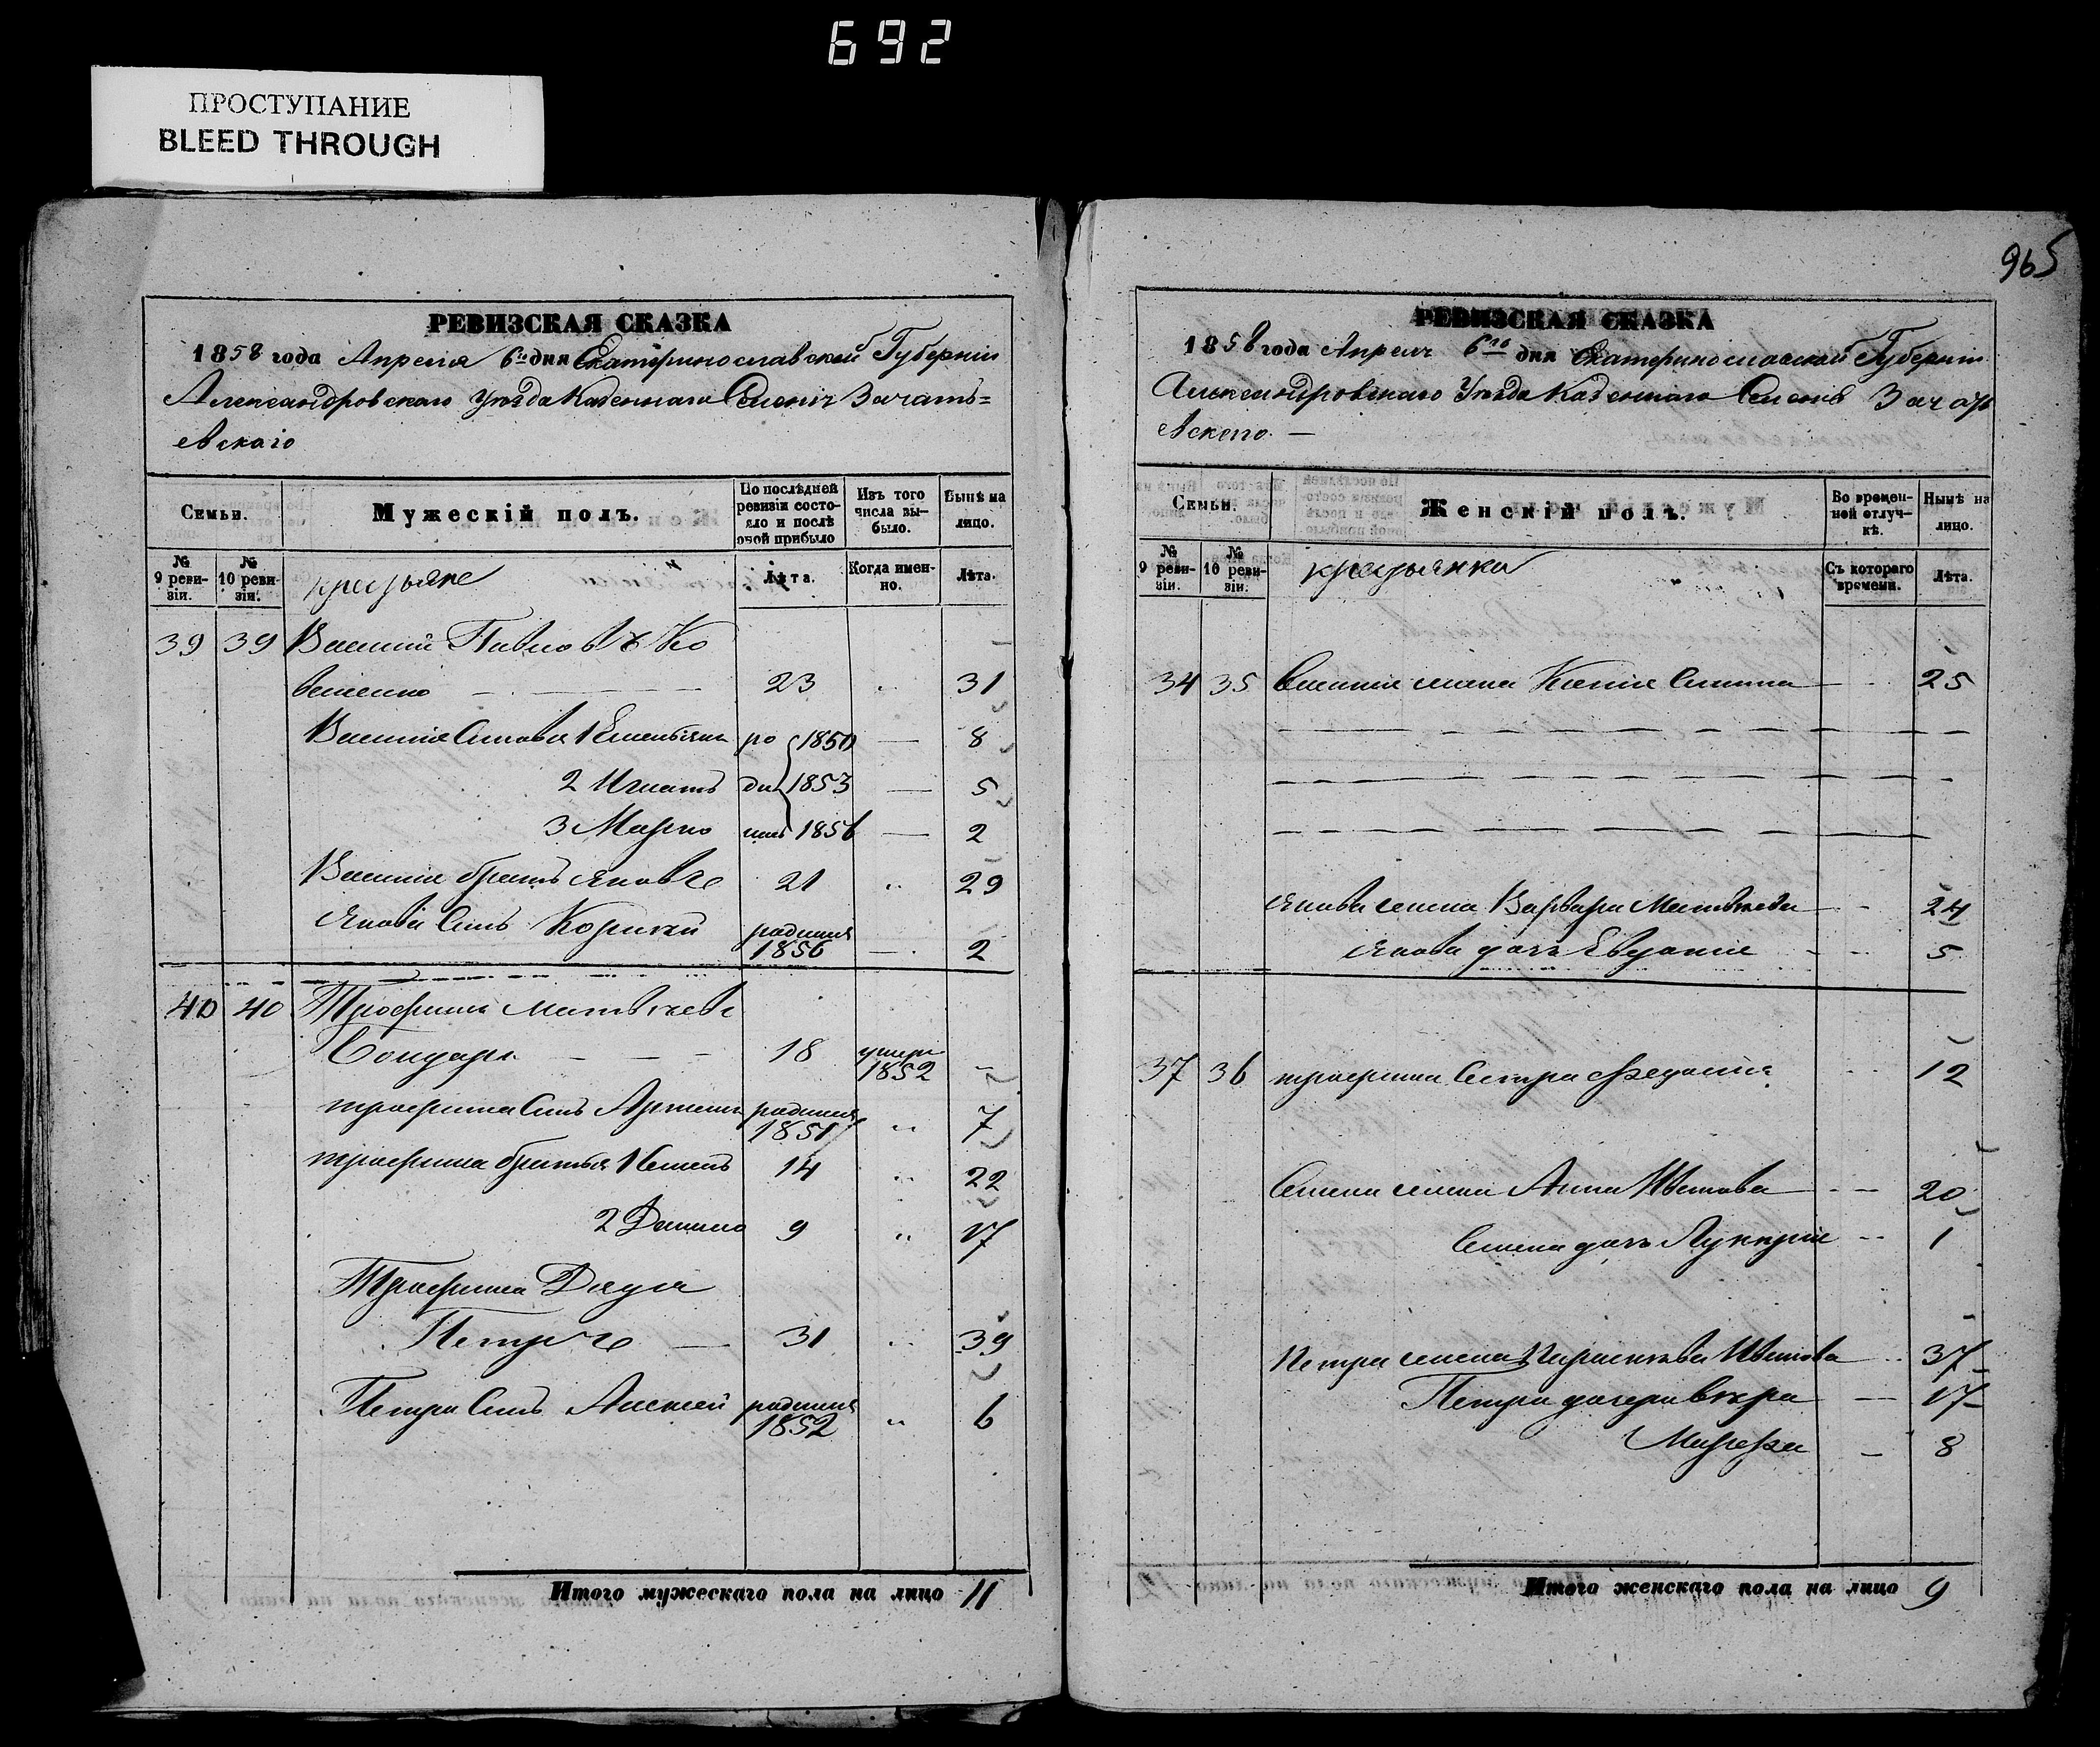 692
ПРОСТУПАНИЕ
BLEED THROUGH
РЕВИЗСКАЯ СКАЗКА
1858 года Апреля 6го дня Екатеринославской Губерніи
Александровскаго Уѣзда Казеннаго Селенія Зачать=
евскаго
Семьи.
Мужескій полъ.
По послѣдней ревизіи состояло и послѣ оной прибыло
Изъ того числа выбыло.
Нынѣ на лицо.
№ 9 ревизіи.
№ 10 ревизіи.
крестьяне
Лѣта.
Когда именно.
Лѣта.
39 39 Василій Павловъ Ко
веленко — 23 „ 31
Василія Сыновья 1 Емельянъ ро 1850 — 8
2 Игнатъ ди 1853 — 5
3 Марко лись 1856 — 2
Василія братъ Яковъ 21 „ 29
Якова Сынъ Корнѣй родился 1856 — 2
40 40 Трофимъ Матвѣевъ
Бондарь — — — 18 умеръ 1852 —
трофима Сынъ Артемъ родился 1851 „ 7
трофима братья 1 Семенъ 14 „ 22
2 Данило 9 „ 17
Трофима Дядя
Петръ — 31 „ 39
Петра Сынъ Алексей родился 1852 „ 6
Итого мужескаго пола на лицо 11
965
РЕВИЗСКАЯ СКАЗКА
1858 года Апреля 6го дня Екатеринославской Губерніи
Александровскаго Уѣзда Казеннаго Селенія Зачать
евскаго —
Семьи.
Женскій полъ.
Во временной отлучкѣ.
Нынѣ на лицо.
№ 9 ревизіи.
№ 10 ревизіи.
крестьянки
Съ котораго времени.
Лѣта.
34 35 Василія жена Ксенія — 25
Якова жена Варвара Матвѣева — 24
Якова дочь Евдокія — 5
37 36 трофима Сестра Федосія 12
Семена жена Анна Иванова — 20
Семена дочь Лукерія 1
Петра жена Парасковья Иванова 37
Петра дочери Вѣра — 17
Марфа — 8
Итого женскаго пола на лицо 9